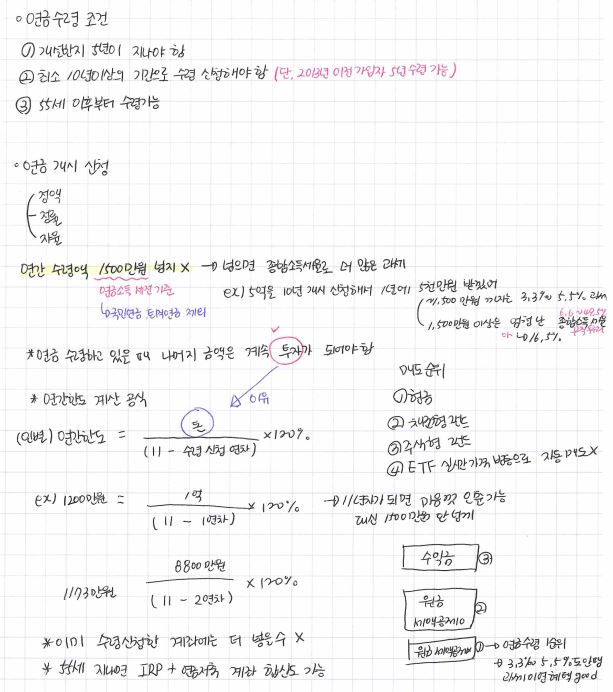 ◦ 연금수령 조건
① 개설한지 5년이 지나야 함
② 최소 10년이상의 기간으로 수령 신청해야 함 (단, 2013년 이전 가입자 5년 수령 가능)
③ 55세 이후부터 수령가능
◦ 연금 개시 신청
정액
정률
자율
연간 수령액 1500만원 넘지 X → 넘으면 종합소득세율로 더 많은 과세
연금소득세 기준
↳ 국민연금 퇴직연금 제외
ex) 5억을 10년 개시 신청해서 1년에 5천만원 받았어
~1,500만원 까지는 3.3% 5.5% 과세
1,500만원 이상은 종합소득세율
6.6~49.5%
16.5%
* 연금 수령하고 있을 때 나머지 금액은 계속 투자가 되어야 함
이유
* 연간한도 계산 공식
(인별) 연간한도 = 돈 / (11 - 수령 신청 연차) × 120%
ex) 1200만원 = 1억 / (11 - 1연차) × 120%
→ 11년차가 되면 마음껏 인출가능
대신 1500만원 안 넘기
1173만원 8800만원 / (11 - 2연차) × 120%
* 이미 수령신청한 계좌에는 더 넣을수 X
* 55세 지나면 IRP + 연금저축 계좌 합산도 가능
매도순위
① 현금
② 채권형 펀드
③ 주식형 펀드
④ ETF 실시간 가격 변동으로 자동매도 X
수익금 ③
원금
세액공제 O ②
원금 세액공제 X ① → 연금수령 1순위
→ 3.3% 5.5%도 안뗌
과세이연혜택 good